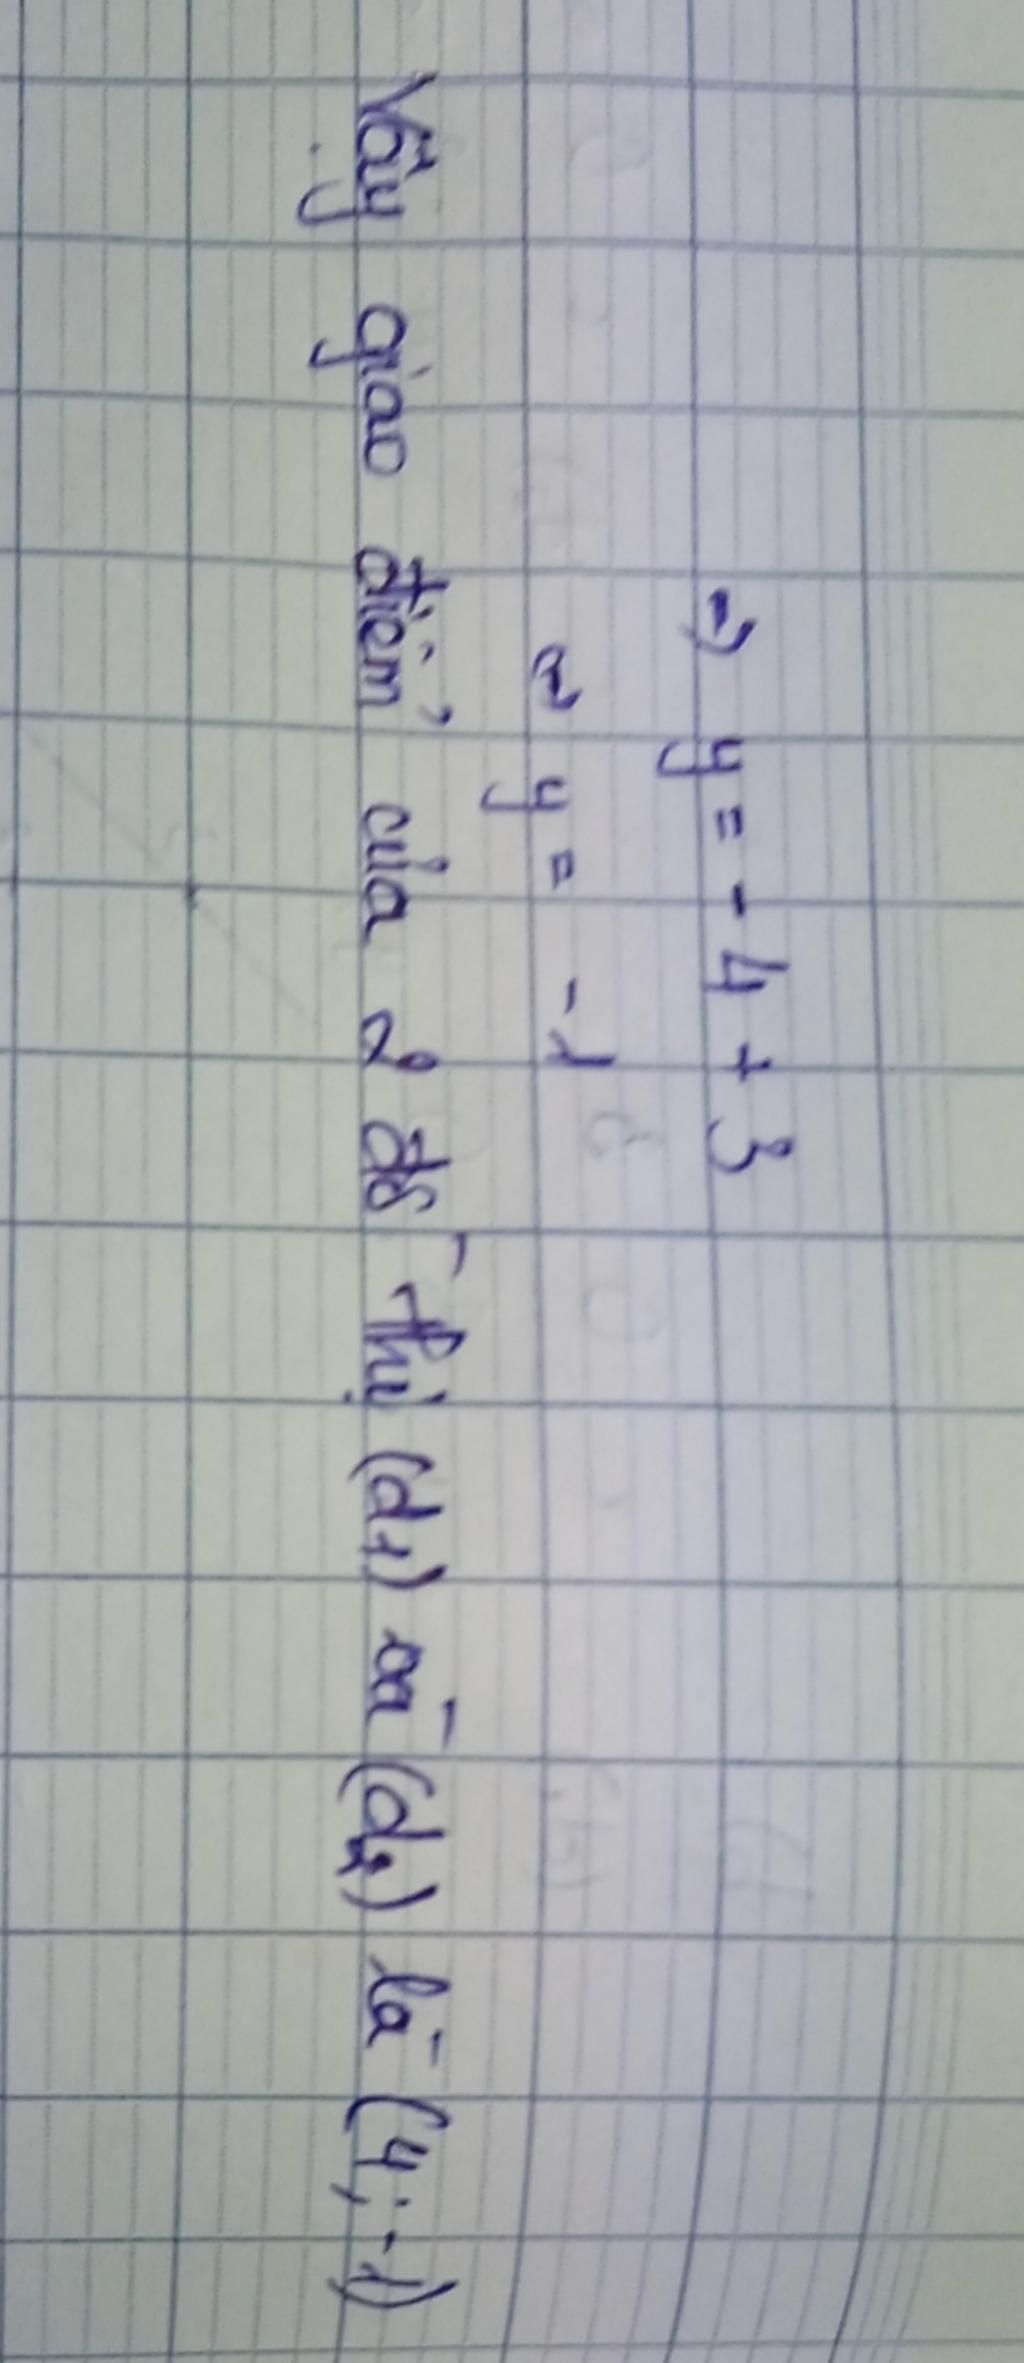 => y = - 4 + 3
<=> y = -1
Vậy giao điểm của 2 đồ thị (d₁) và (d₂) là (4; -1)